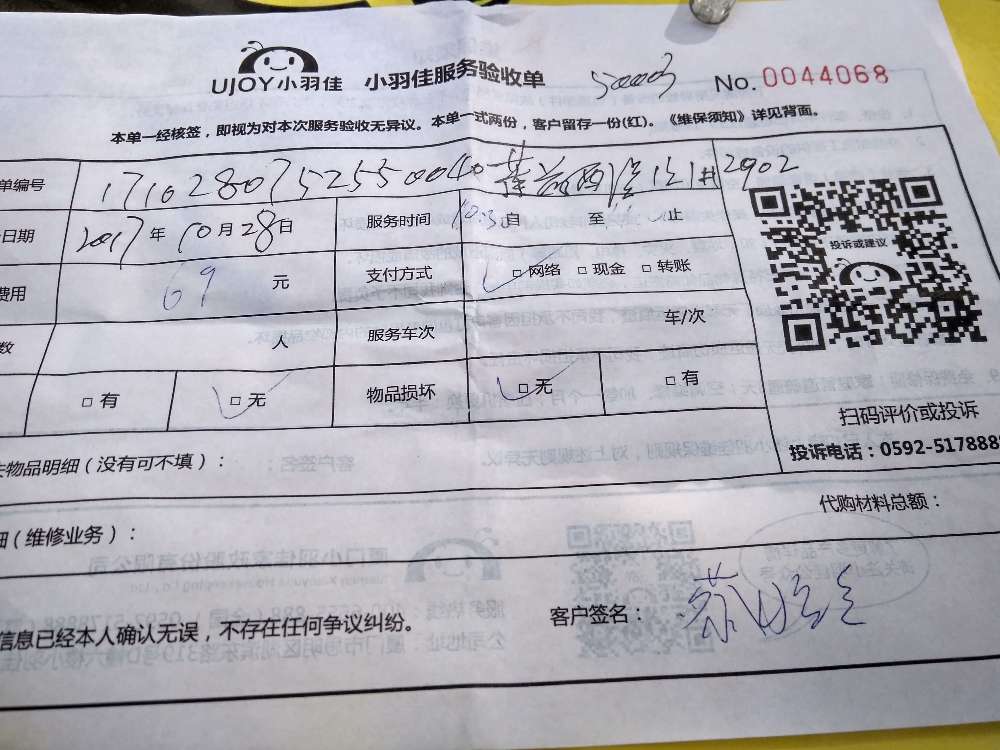 UJOY小羽佳 小羽佳服务验收单 50003 No. 0044068
本单一经核签，即视为对本次服务验收无异议。本单一式两份，客户留存一份(红)。《维保须知》详见背面。
单编号 171028075255500040 2902
日期 2017年10月28日 服务时间 自 至 止
费用 69元 支付方式 □网络 □现金 □转账
投诉或建议
数 人 服务车次 车/次
□有 □无 物品损坏 □无 □有
扫码评价或投诉
投诉电话：0592-5178888
物品明细（没有可不填）：
代购材料总额：
细（维修业务）：
信息已经本人确认无误，不存在任何争议纠纷。 客户签名：